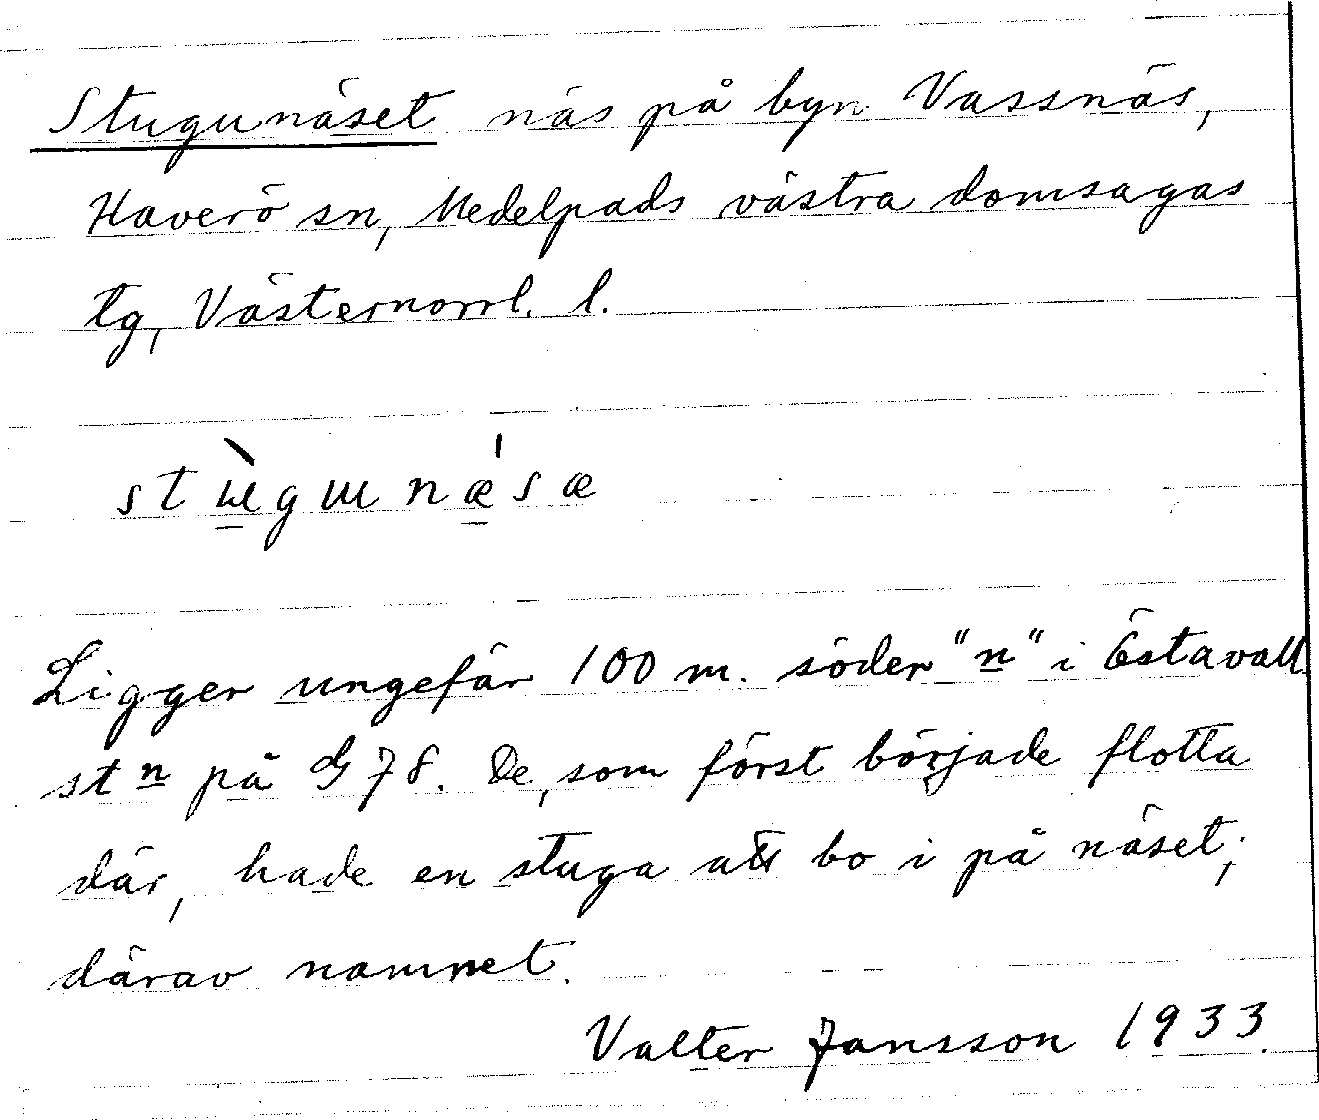 Stugunäset näs på byn Vassnäs,
Haverö sn, Medelpads västra domsagas
tg, Västernorrl. l.
stɯ̀gɯnǽsæ
Ligger ungefär 100 m. söder "n" i Östavall
stn på G 78. De, som först började flotta
där, hade en stuga att bo i på näset;
därav namnet.
Valter Jansson 1933.